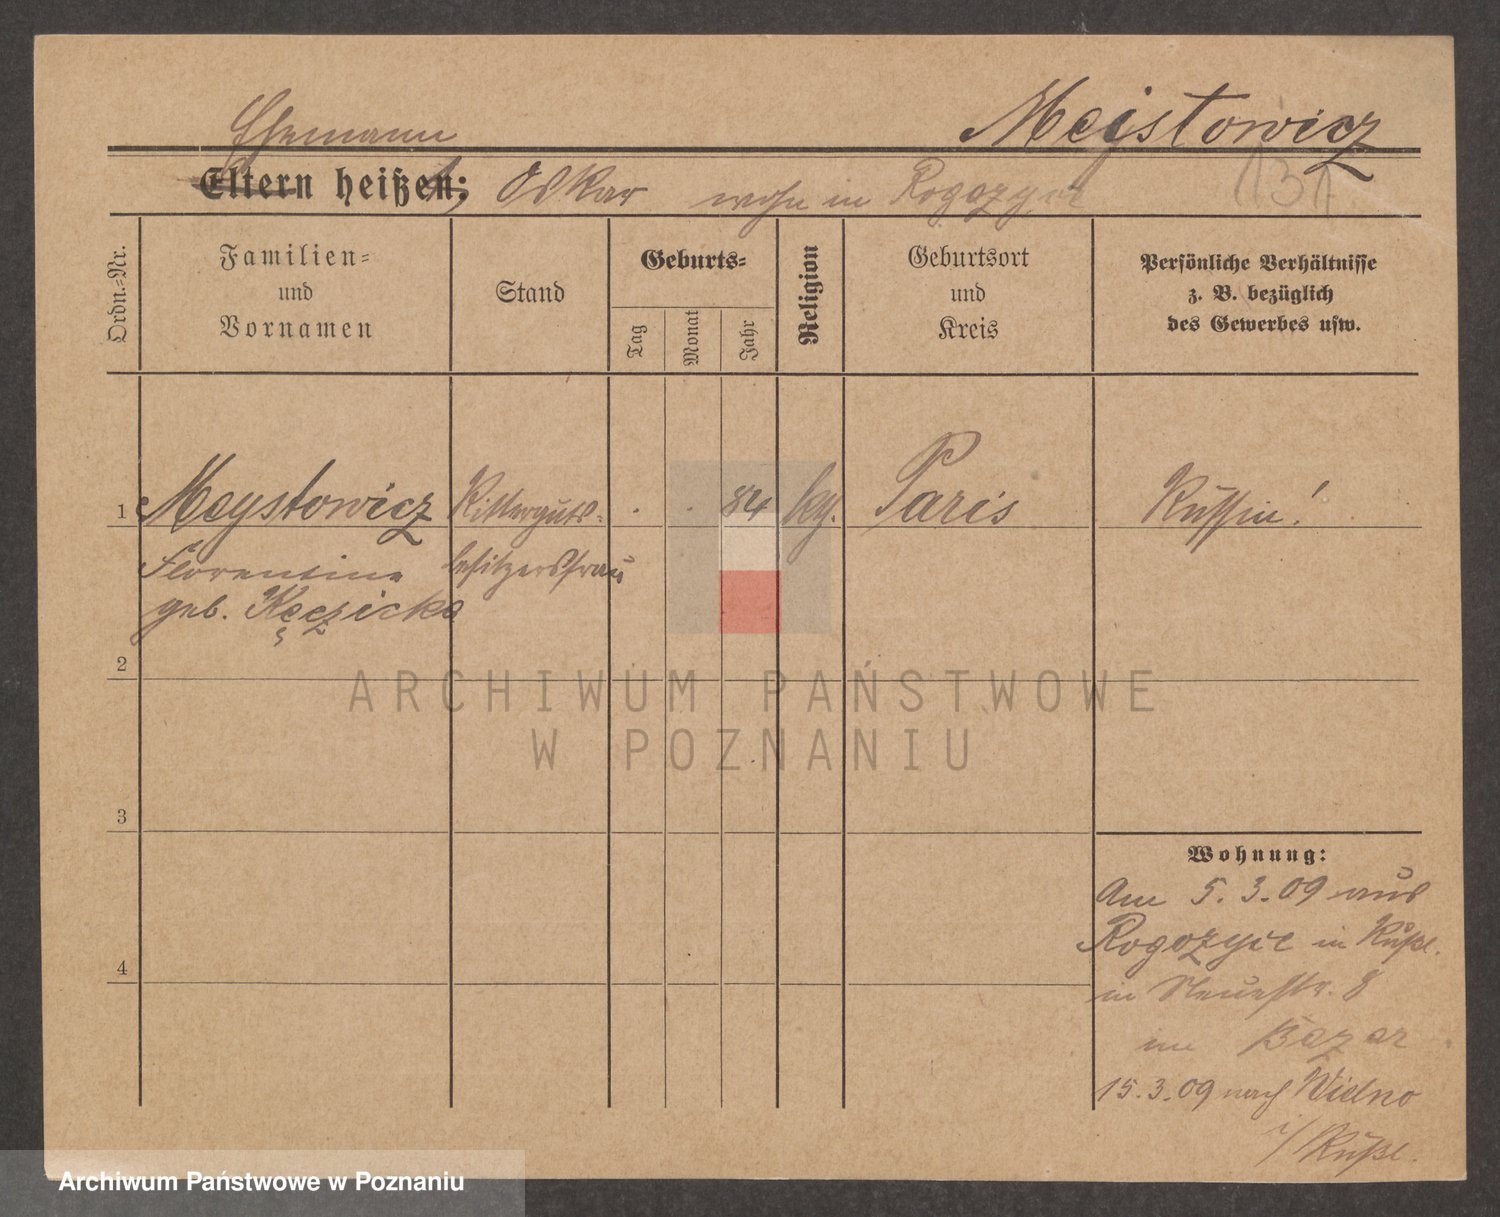 Meistowicz
Ehemann
Eltern heißen: Oskar wohn in Rogozyie
131
Ordn.-Nr.
Familien-
und
Vornamen
Stand
Geburts-
Tag
Monat
Jahr
Religion
Geburtsort
und
Kreis
Persönliche Verhältnisse
z. B. bezüglich
des Gewerbes usw.
1 Meystowicz Ritterguts- . . 84 kg. Paris Russin!
Florentine besitzersfrau
geb.
2
ARCHIWUM PAŃSTWOWE
W POZNANIU
3
Wohnung:
Am 5.3.09 aus
Rogozyie in Rußl.
4
in Neuestr. 8
im Bazar
15.3.09 nach Wielno
i/Rußl.
Archiwum Państwowe w Poznaniu